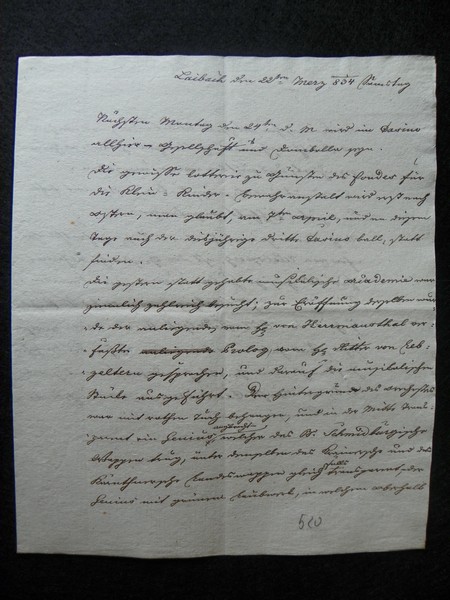 Laibach den 22ten Merz 834 Samstag
Nächsten Montag den 24ten d. M wird im Casino
allhier Gesellschaft und Tombolla seyn.
Die gewisse Lotterie zu Gunsten des Fondes für
die Klein-Kinder-bewahranstalt wird erst nach
Ostern, man glaubt, am 7ten April, und an diesem
Tage auch der diesjährige dritte Casino ball, statt
finden.
Die gestern statt gehabte musikalische Academie war
ziemlich zahlreich besucht; zur Eröffnung derselben wur
de der anliegende, vom H von Herrmansthal ver
faßte Prolog, vom H Ritter von
gesprochen, und darauf die musikalischen
Stücke ausgeführt. Der Hintergrund des Orchesters
war mit rothen Tuch behangen, und in der Mitte
ein Genius welcher das Gr. Schmidburgische
Wappen trug, unter demselben das Krainerische und das
Kärnthnerische Landeswappen gleichfalls Transparent, der
Genius mit einem in welchem oberhalb
520